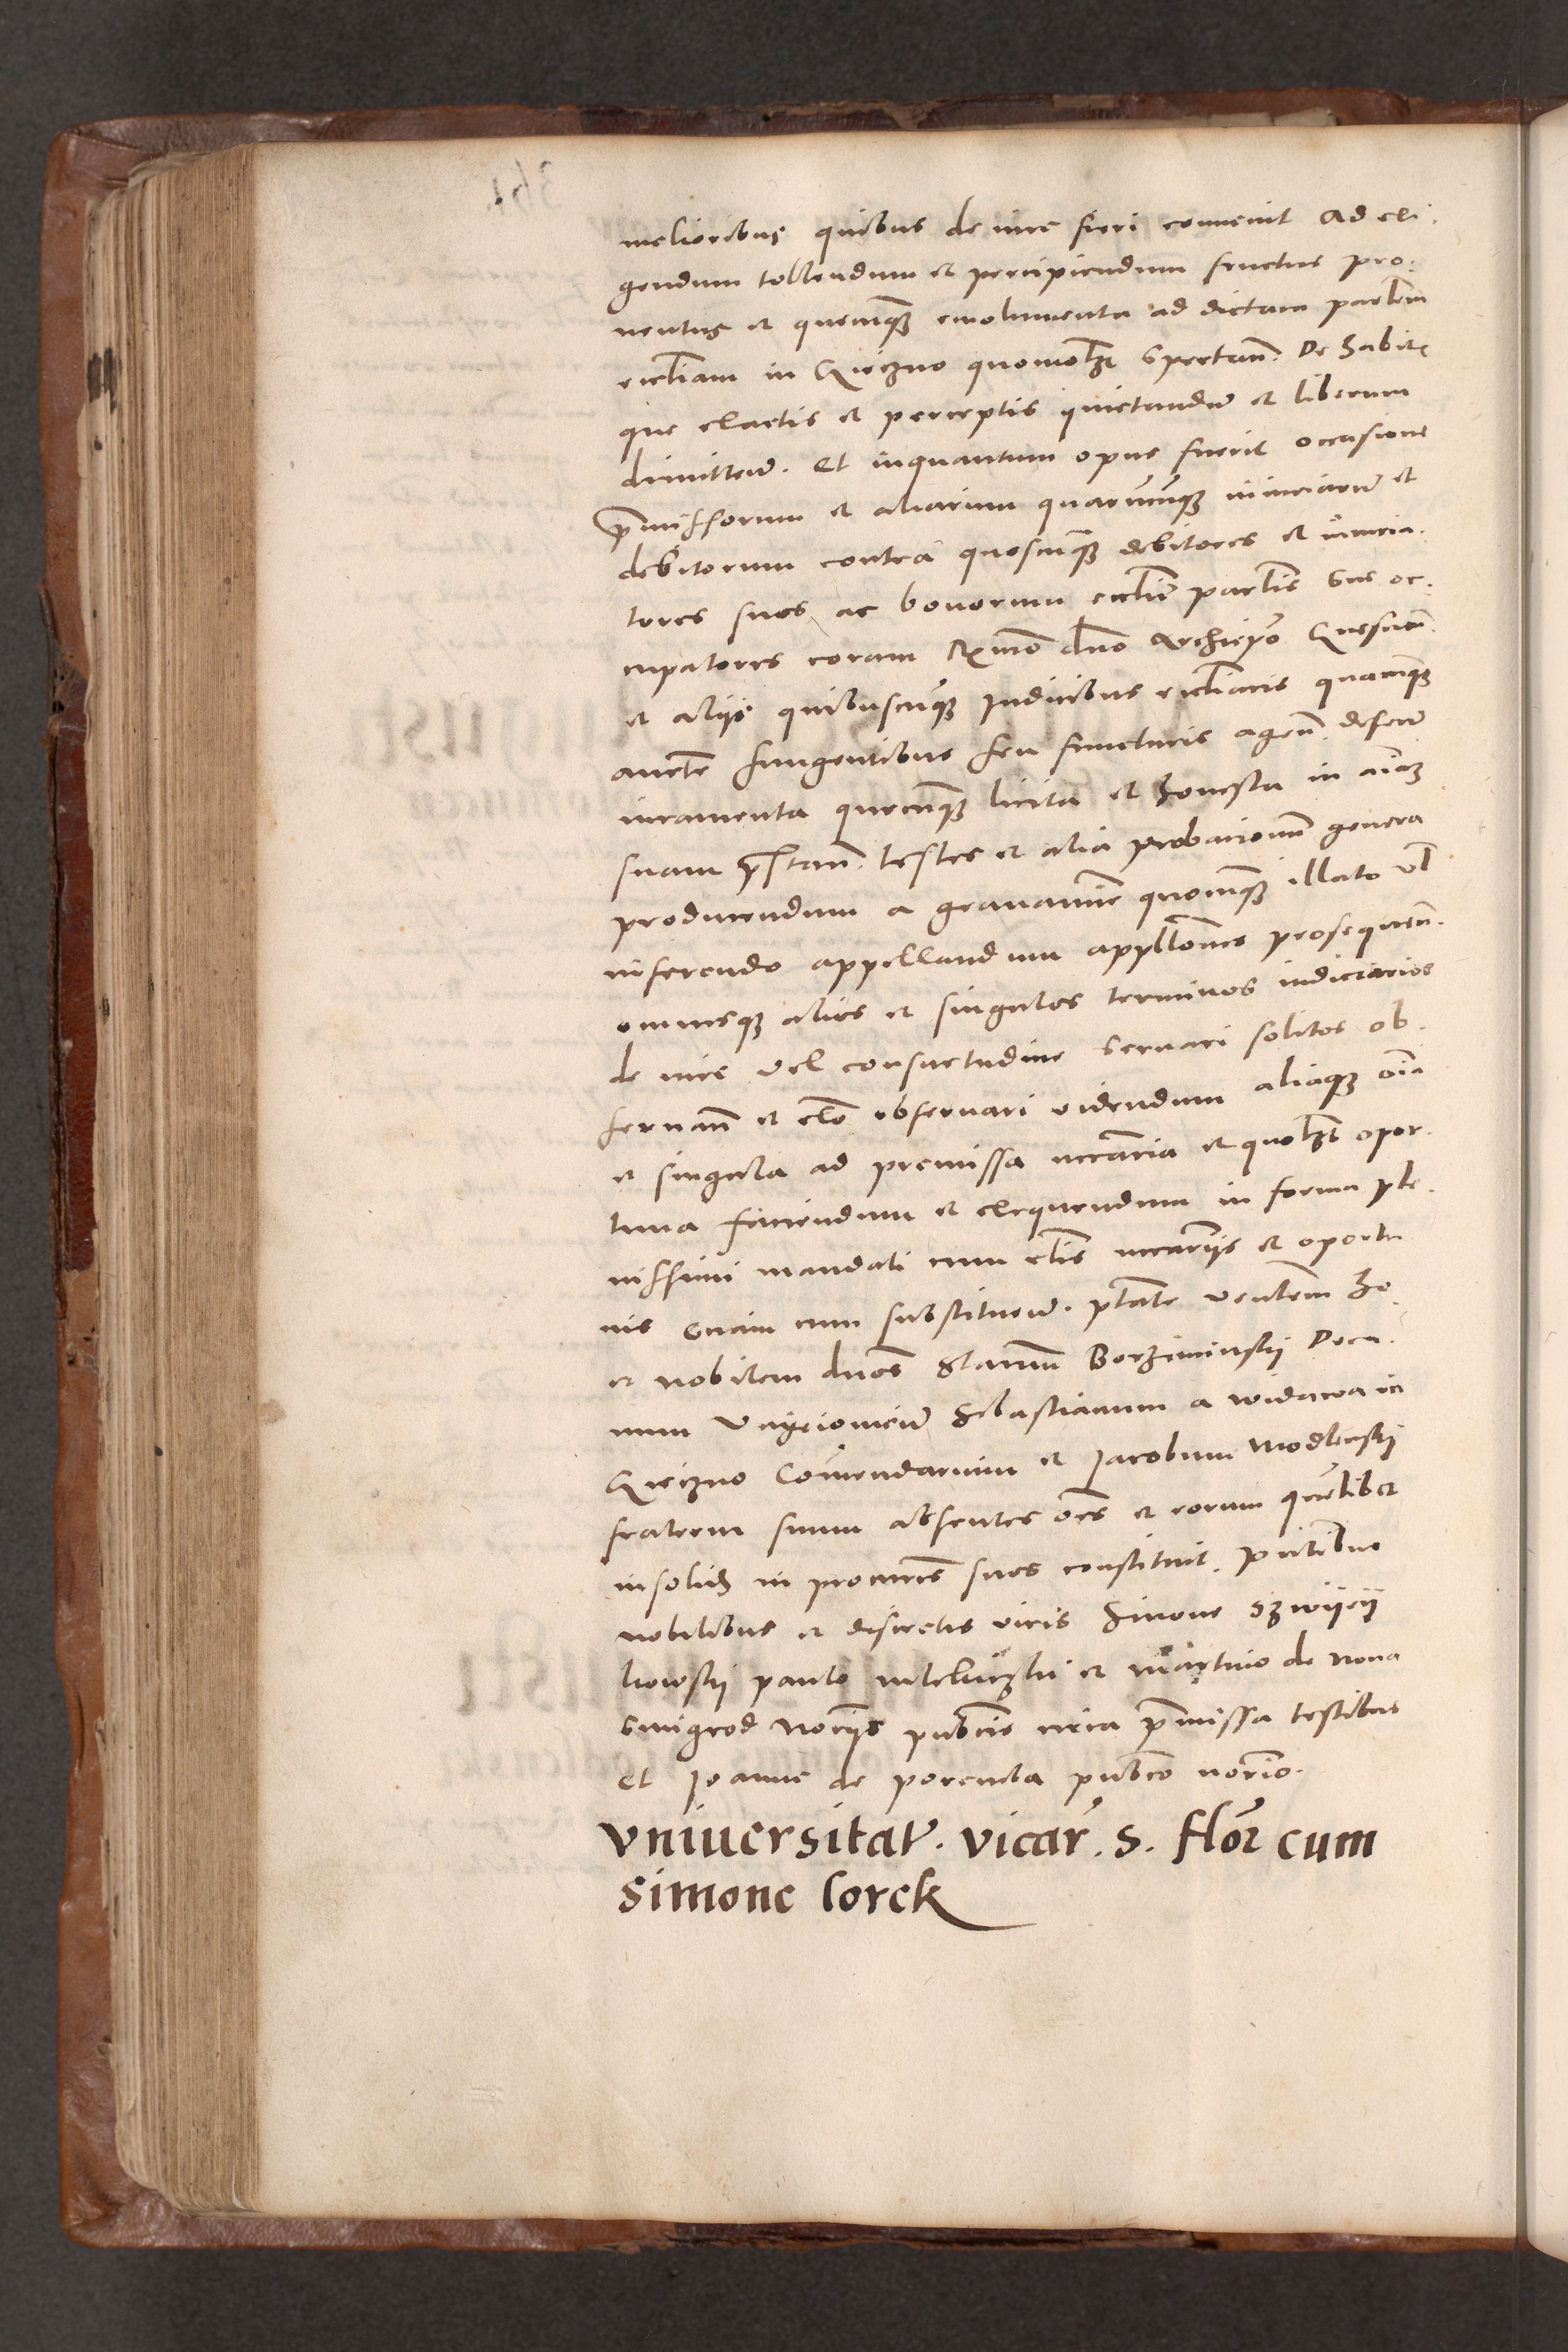 melioribus quibus de iure fieri convenit Ad exi.
gendum tollendum et percipiendum fructus pro.
ventus et quecumq(ue) emolumenta ad dictam paro(chia)lem
eccl(es)iam in Gieczno quomol(ibe)t spectan. De habitis
que exactis et perceptis quietandum et liberum
dimitten. Et inquantum opus fuerit occasione
p(re)missorum et aliarum quarumcumq(ue) iniuriarum et
debitorum contra quoscumq(ue) debitores et iniuria.
tores suos ac bonorum eccl(es)ie paro(chia)lis sue oc.
cupatores coram R(everendissi)mo d(omi)no Archiep(iscop)o Gnesnen.
et aliis quibuscumq(ue) Judicibus eccl(es)iasticis quacumq(ue)
auct(orita)te fungentibus seu functuris agen. deferen
iuramenta quecumq(ue) licita et honesta in a(n)i(m)am
suam p(re)stan. testes et alia probacionum genera
producendum a gravamine quocumq(ue) illato v(e)l
inferendo appellandum app(e)ll(aci)ones prosequen.
omnesq(ue) alios et singulos terminos iudiciarios
de iure vel consuetudine servari solitos ob.
servan et observari videndum aliaq(ue) o(mn)ia
et singula ad premissa necc(ess)aria et quol(ibe)t opor.
tuna faciendum et exequendum in forma ple.
nissimi mandati cum cl(ausu)lis necc(ess)ariis et oportu
nis eciam cum substituen. p(otes)tate ven(erabi)lem Ho.
et nobilem d(omi)nos Stan(islau)m Borziminskij Deca.
num Uneiovien Sebastianum a widawa in
Gieczno Commendarium et Jacobum Modlenskij
fratrem suum absentes o(mn)es et eorum quemlibet
insolid(um) in proc(urato)res suos constituit. p(rese)ntibus
nobilibus et discretis viris Simone
Paulo et martino de nova
Smigrod no(ta)riis pub(li)cis circa p(re)missa testibus
et Joanne de poremba pub(li)co no(ta)rio.
Universitat. vicar. S. Flor cum
Simone lorek